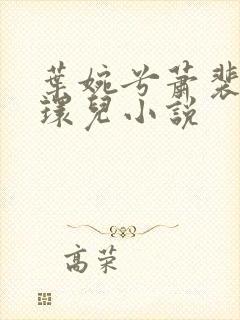 葉婉兮蕭裴
環兒小說
高荣